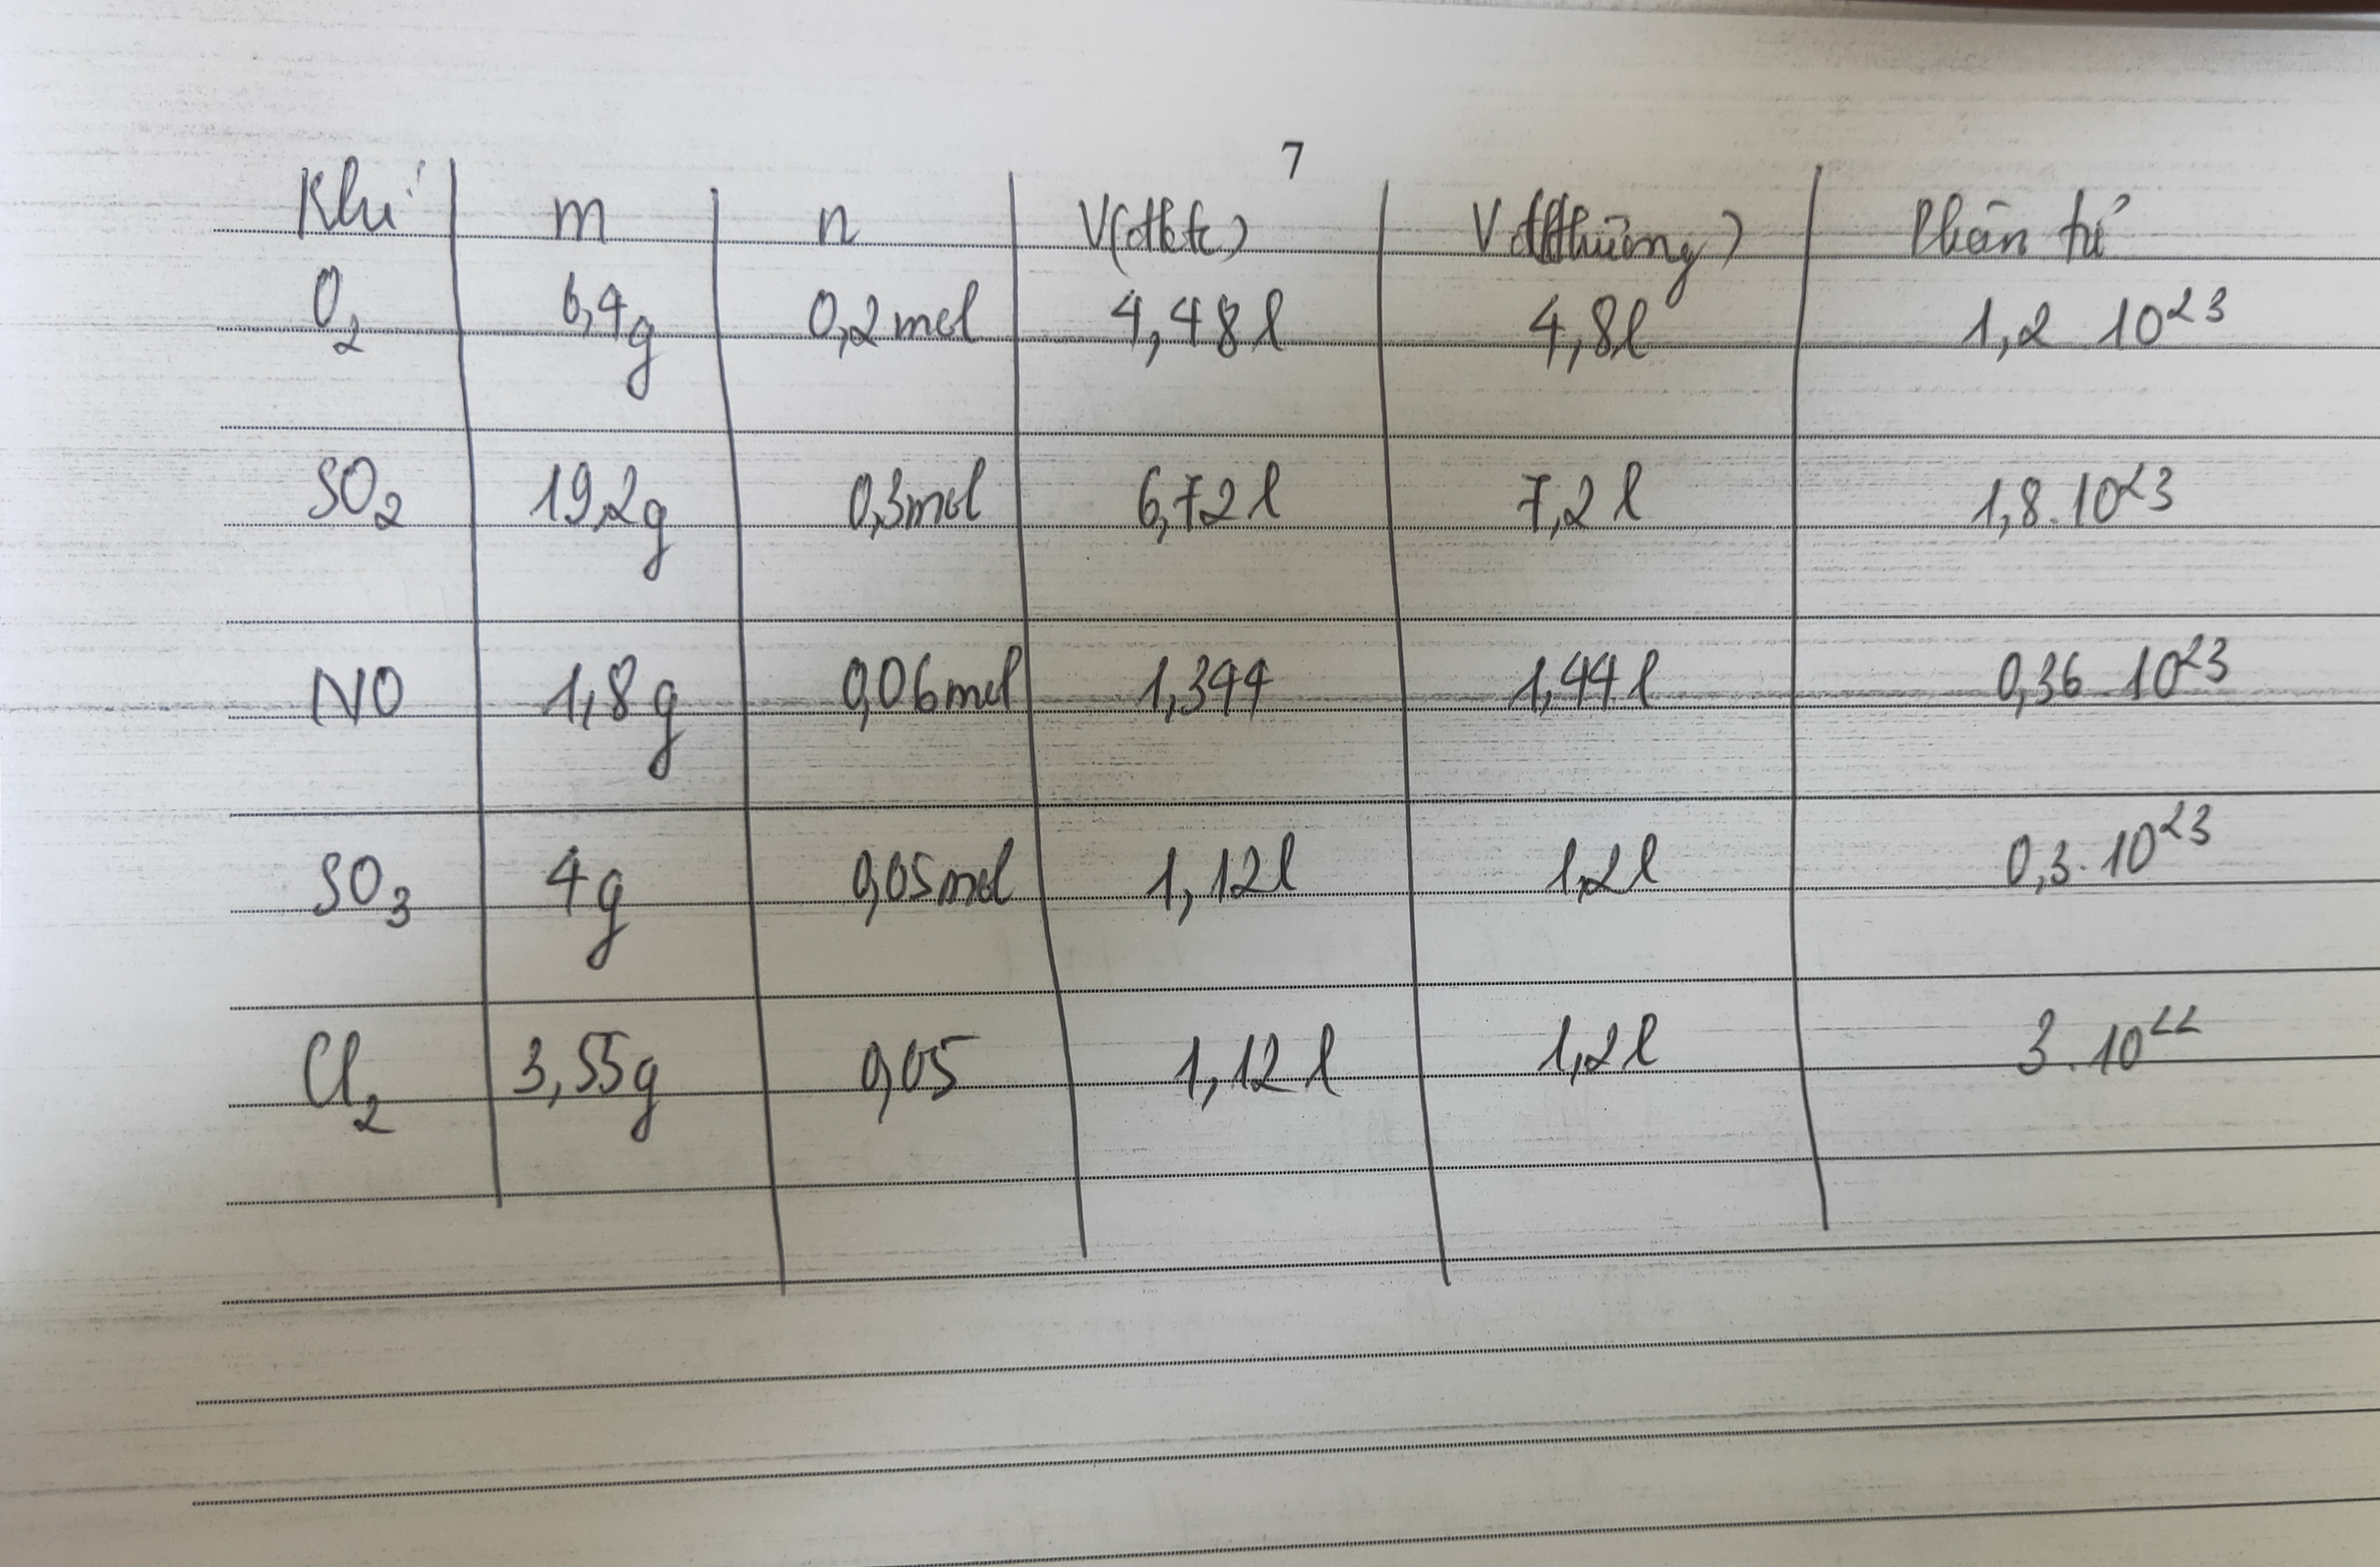 7
Khí m n V(đktc) V đktthường) Phân tử
O₂ 6,4g 0,2mol 4,48l 4,8l 1,2 10²³
SO₂ 19,2g 0,3mol 6,72l 7,2l 1,8.10²³
NO 1,8g 0,06mol 1,344 1,44l 0,36.10²³
SO₃ 4g 0,05mol 1,12l 1,2l 0,3.10²³
Cl₂ 3,55g 0,05 1,12l 1,2l 3.10²²